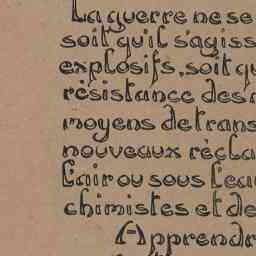 La guerre ne se
soit qu'il s'agiss
explosifs, soit qu
résistance des
moyens de trans
nouveaux récla
l'air ou sous l'eau
chimistes et de
Apprendr